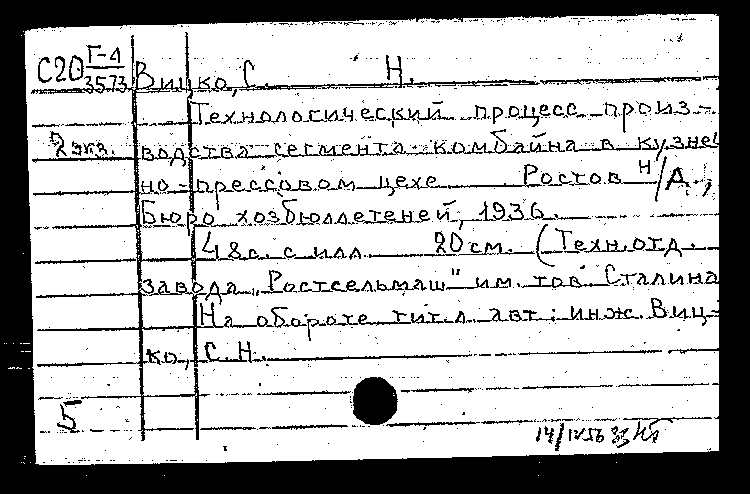 С20 Г-4/3573 Вицко, С. Н.
Технологический процесс произ-
2 экз. водства сегмента комбайна в кузнеч
но-прессовом цехе Ростов н/Д.,
Бюро хозбюллетеней, 1936.
48 с. с илл. 20 см. (Техн. отд.
завода „Ростсельмаш" им. тов. Сталина
На обороте тит. л. авт: инж. Виц-
ко, С. Н.
5
14/IV 56